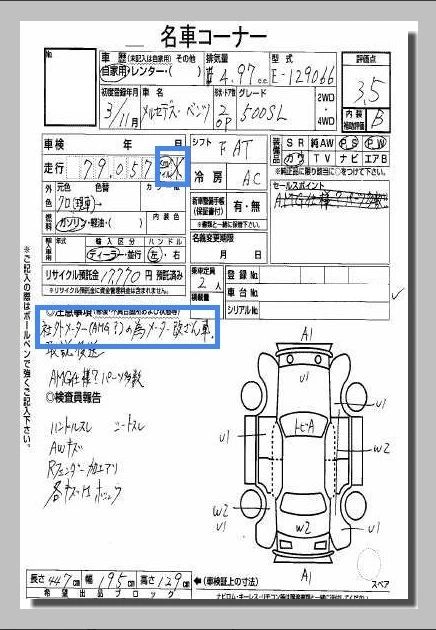 名車コーナー
No.
車歴 (未記入は自家用) 自家用・レンター・( )
排気量 4.97 c.c
型式 E-129066
評価点 3.5
初度登録年月 3/11月
メルセデス・ベンツ
ドア・型状 2 OP
グレード 500SL
2WD・4WD
内装補助評価 B
車検 年 月
走行 79,057 km
シフト FAT
装備品 SR 純AW PS PW
カワ TV ナビ エアB
※純正品に限り該当に○をつける
外色 元色 色替 カラーNo.
クロ (現車)
冷房 AC
セールスポイント
AMG仕様?パーツ多数
燃料 ガソリン・軽油・( ) 内装色
新車整備保証書 (保証書付) 有・無
※書類と一緒に保管下さい。
輸入車用 年式 輸入区分 ハンドル
ディーラー・並行 左・右
名義変更期限
月 日
リサイクル預託金 17770 円 預託済み
※リサイクル預託金に資金管理料金は含まれません。
乗車定員 2 人
積載量
登録No.
車台No.
シリアルNo.
◎注意事項
社外メーター(AMG?)の為メーター改ざん車.
取説後送
AMG仕様?パーツ多数
◎検査員報告
ハンドルスレ シートスレ
AWキズ
Rフェンダー加工アリ
※ご記入の際はボールペンで強くご記入下さい。
A1
U1
U1
U1
トビーA
U1
W2
W2
W2
U1
A1
スペア
長さ 447 cm 幅 195 cm 高さ 129 cm ←(車検証上の寸法)
希望出品ブロック